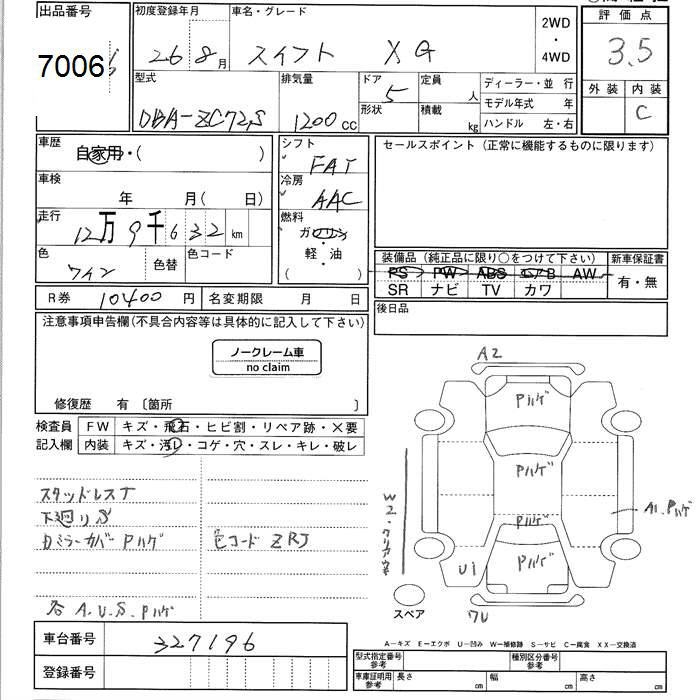 出品番号
7006
初度登録年月
26 8月
車名・グレード
スイフト XG
2WD
・
4WD
評価点
3.5
外装 内装
C
型式
DBA-ZC72S
排気量
1200cc
ドア
5
形状
定員
人
積載
kg
ディーラー・並行
モデル年式 年
ハンドル 左・右
車歴
自家用・( )
車検
年 月(日)
走行
12万9千632km
色
ワイン
色替
色コード
シフト
FAT
冷房
AAC
燃料
ガソリン
・
軽・油
( )
セールスポイント(正常に機能するものに限ります)
装備品(純正品に限り○をつけて下さい)
PS PW ABS エアB AW
SR ナビ TV カワ
新車保証書
有・無
R券 10400円
名変期限 月 日
後日品
注意事項申告欄(不具合内容等は具体的に記入して下さい)
ノークレーム車
no claim
修復歴 有 〔箇所 〕
検査員
記入欄
FW キズ・飛石・ヒビ割・リペア跡・×要
内装 キズ・汚レ・コゲ・穴・スレ・キレ・破レ
スタッドレスT
下廻りS
ドアミラーカバーPハゲ
色コード ZRJ
各A.U.S.Pハゲ
A2
Pハゲ
Pハゲ
Pハゲ
Pハゲ
A1.Pハゲ
W2・クリアハゲ
U1
スペア
A-キズ E-エクボ U-凹み W-補修跡 S-サビ C-腐食 XX-交換済
車台番号
327196
登録番号
型式指定番号
参考
種別区分番号
参考
車庫証明用
参考
長さ cm
幅 cm
高さ cm